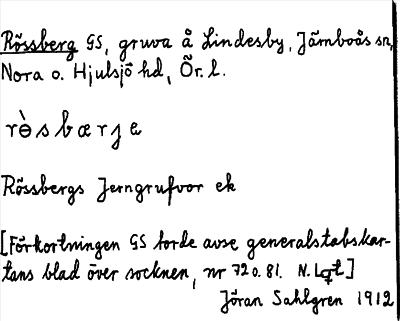 Rössberg GS, gruva å Lindesby, Järnboås sn,
Nora o. Hjulsjö hd, Ör. l.
rɵ̀sbærjɐ
Rössbergs Jerngrufvor ek
[Förkortningen GS torde avse generalstabskar-
tans blad över socknen, nr 72 o. 81. N. Lgt]
Jöran Sahlgren 1912